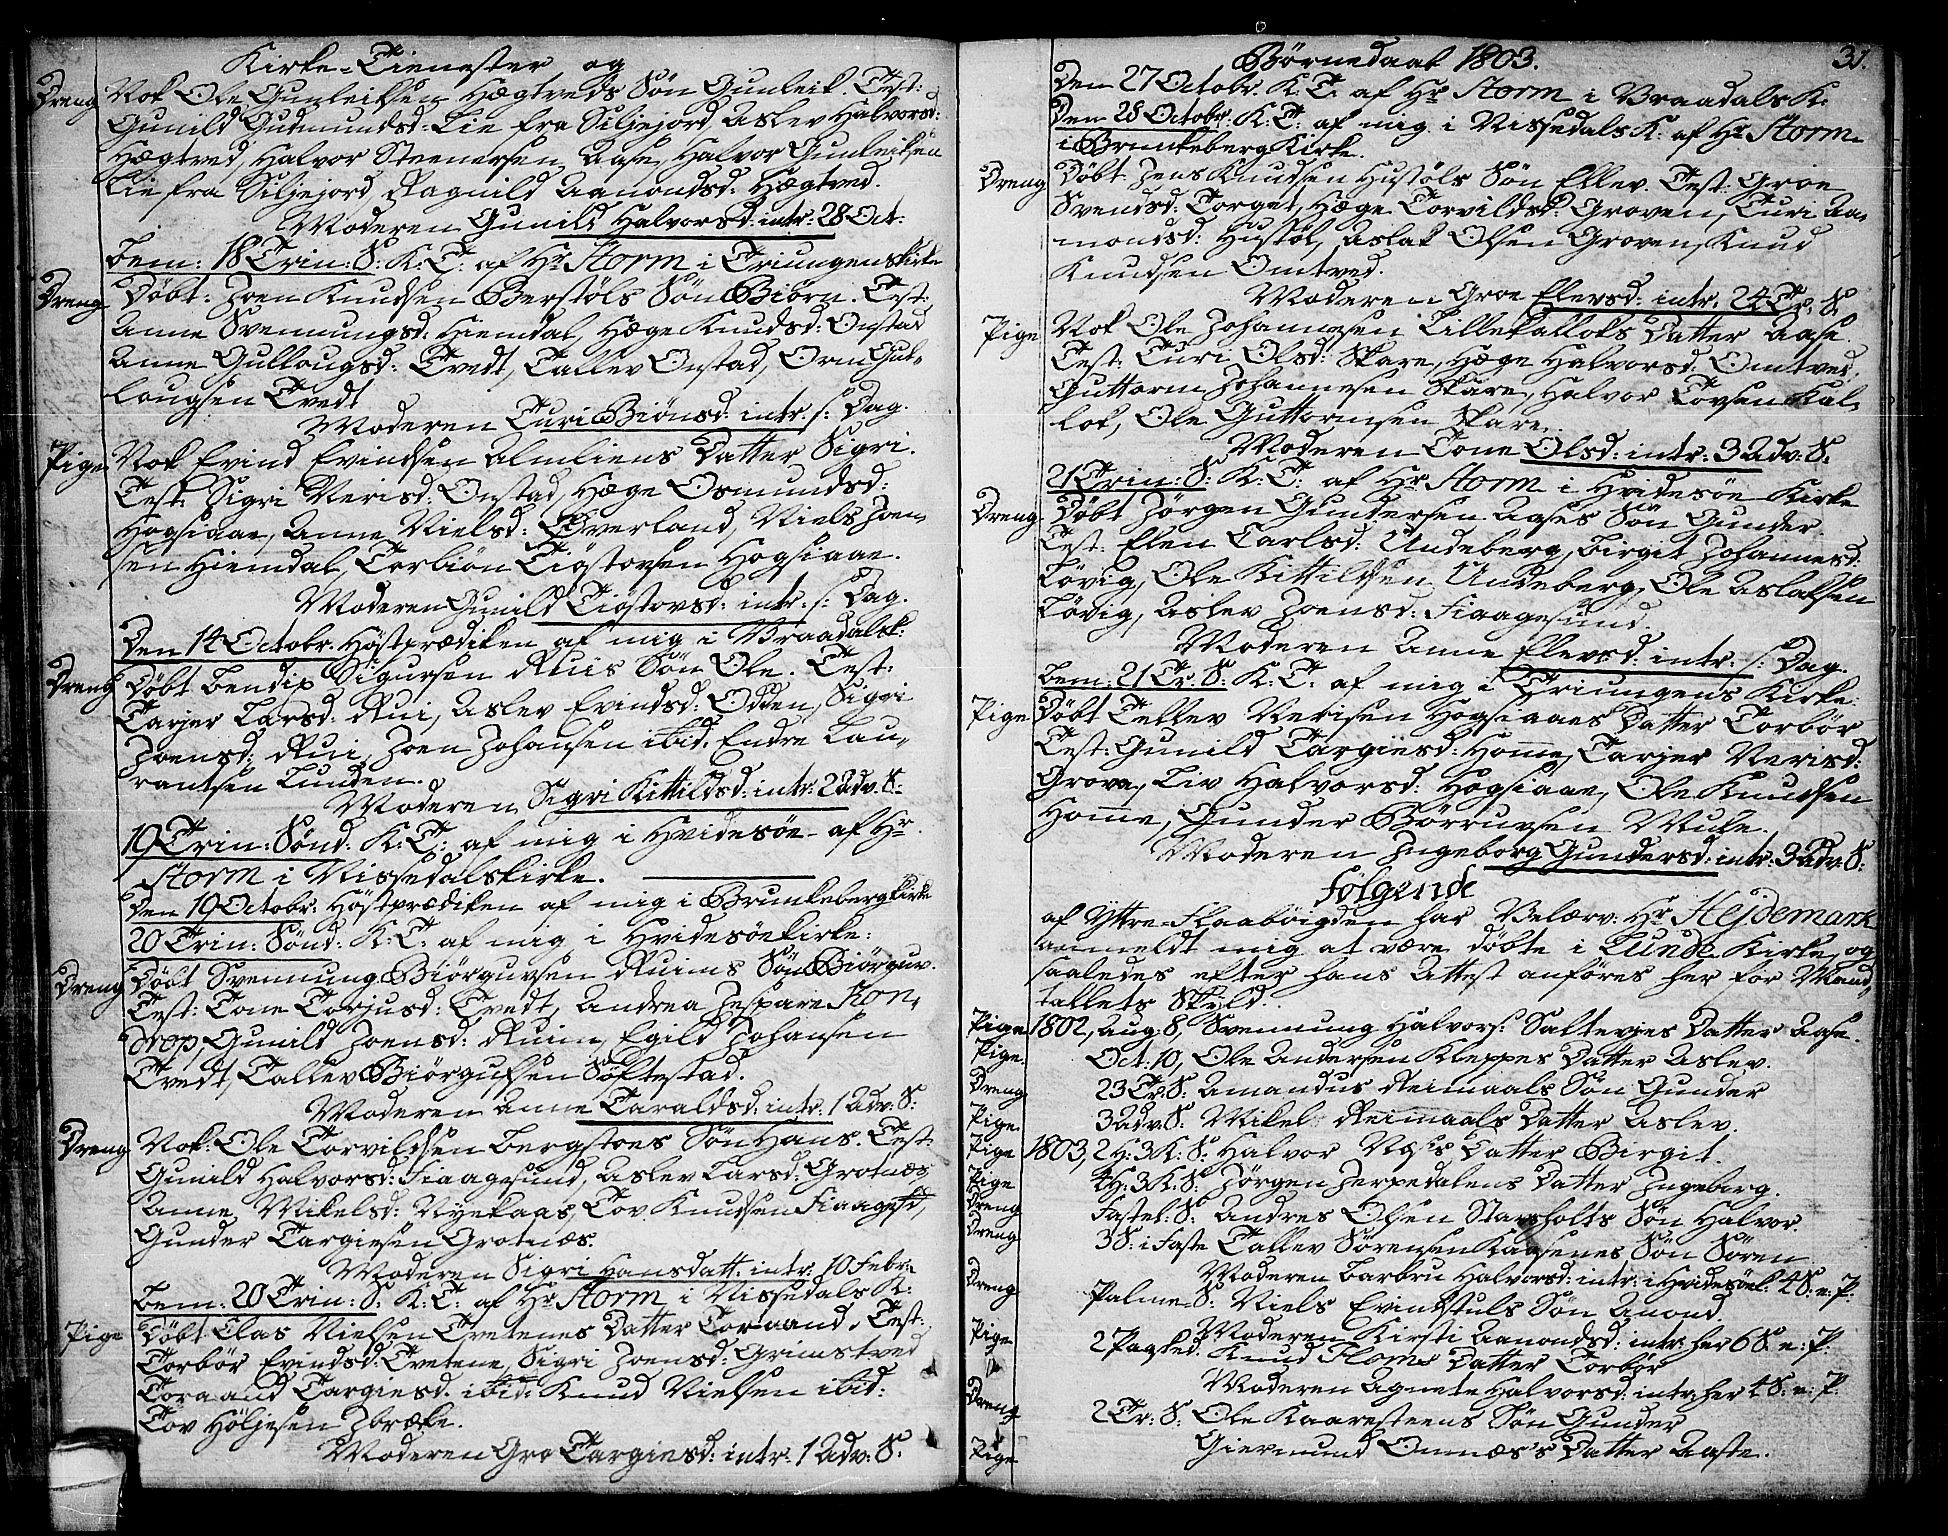 Kirke-Tienester og
Dreng Nok Ole Gunleiksen Hægtveds Søn Gunleik. Test:
Gunild Gudmundsd: Lie fra Siljejord, Aslev Halvorsd:
Hægtved, Halvor Steenersen Aase, Halvor Gunleiksen
Lie fra Siljejord, Ragnild Aanondsd: Hægtved.
Moderen Gunild Halvorsd: intr: 28 Oct:
Bem: 18 Trin: S: K: T: af Hr Storm i Triungenskirke
Dreng Døbt: Joen Knudsen Berstøls Søn Biørn. Test:
Anne Svennungsd: Hiemdal, Hæge Knudsd: Onstad
Anne Gullougsd: Tvedt, Tallev Onstad, Orm Gul-
lougsen Tvedt
Moderen Turi Biønsd: intr: s: Dag.
Pige Nok Evind Evindsen Almliens Datter Sigri.
Test: Sigri Verisd: Onstad, Hæge Osmundsd:
Hogsiaae, Anne Nielsd: Øverland, Niels Joen-
sen Hiemdal, Torbiøn Tiøstovsen Hogsiaae.
Moderen Gunild Tiøstovsd: intr: s: Dag.
Den 14 Octobr. Høstprædiken af mig i Vraadalsk:
Dreng Døbt Bendix Sigursen Ruis Søn Ole. Test:
Tarjer Larsd: Rui, Aslev Evindsd: Odden, Sigri
Joensd: Rui, Joen Johansen ibid. Endre Lau-
rantsen Lunden.
Moderen Sigri Kittildsd: intr: 2 Adv: S:
19 Trin: Sønd: K: T: af mig i Hvidesøe - af Hr
Storm i Nissedalskirke.
Den 19 Octobr: Høstprædiken af mig i Brunkebergkirke
20 Trin: Sønd: K: T: af mig i Hvidesøekirke:
Dreng Døbt Svennung Biørgulsen Ruims Søn Biørguv.
Test: Tone Torjusd: Tvedt, Andrea Jespare Kon-
drop, Gunild Joensd: Ruim, Egild Johansen
Tvedt, Tallev Biørgulsen Søftestad.
Moderen Anne Taraldsd: intr: 1 Adv: S:
Dreng Nok: Ole Torvildsen Bergstoes Søn Hans. Test:
Gunild Halvorsd: Fiaagesund, Aslev Larsd: Grotnæs
Anne Mikelsd: Nyekaas, Tov Knudsen Fiaagesd,
Gunder Targiesen Grotnæs.
Moderen Sigri Hansdatt: intr: 10 Febr:
Bem: 20 Trin: S: K: T: af Hr Storm i Nissedals K:
Pige Døbt Clas Nielsen Tvetenes Datter Toraand. Test:
Torbør Evindsd: Tvetene, Sigri Joensd: Grimstved
Toraand Targiesd. ibid: Knud Nielsen ibid:
Tov Høljesen Jbræke.
Moderen Gro Targiesd: intr: 1 Adv: S:
Børnedaab 1803. 31.
Den 27 Octobr. K: T: af Hr Storm i Vraadals K:
Den 28 Octobr. K: T: af mig i Nissedals K: af Hr Storm
i Brunkeberg Kirke.
Dreng Døbt Jens Knudsen Hustøls Søn Ellev. Test: Groe
Svendsd: Torget, Hæge Torvildsd: Groven, Turi Aa-
mondsd: Hustøl, Aslak Olsen Groven, Knud
Knudsen Omtved.
Moderen Groe Elevsd: intr: 24 Tr: S:
Pige Nok Ole Johannesen Lillekalloks Datter Aase.
Test: Turi Olsd: Skare, Hæge Halvorsd: Omtved,
Guttorm Johannesen Skare, Halvor Tovsen Kal-
lok, Ole Guttormsen Skare.
Moderen Tone Olsd: intr: 3 Adv: S:
21 Trin: S: K: T: af Hr Storm i Hvidesøe Kirke
Dreng Døbt Jørgen Gundersen Aases Søn Gunder.
Test: Elen Carlsd: Undeberg, Birgit Johannesd:
Løvig, Ole Kittildsen Undeberg, Ole Aslaksen
Løvig, Aslev Joensd: Fiaagesund.
Moderen Anne Elevsd: intr: s: Dag.
Bem: 21 Tr: S: K: T: af mig i Triungens Kirke:
Pige Døbt Tellev Verisen Hogsiaaes Datter Torbør
Test: Gunild Targiesd: Homme, Tarjer Verisd:
Grova, Liv Halvorsd: Hogsiaae, Ole Knudsen
Homme, Gunder Børruvsen Mule.
Moderen Ingeborg Gundersd: intr: 3 Adv: S:
Følgende
af Yttre-Flaabøigden har Velærv: Hr Hejdemark
anmeldt mig at være døbte i Lunde Kirke, og
saaledes efter hans Attest anføres her for Mand-
tallets Skyld.
Pige 1802, Aug: 8, Svennung Halvors: Saltevjes Datter Aase.
Pige Oct: 10, Ole Andersen Kleppes Datter Aslev.
Dreng 23 Tr: S: Amandus Reimaals Søn Gunder
Pige 3 Adv: S: Mikel Reimaals Datter Aslev.
Pige 1803, 2 H: 3 K: S: Halvor Datter Birgit.
Pige 4 H: 3 K: S: Jørgen Jerpedalens Datter Ingeborg.
Dreng Fastel: S: Andres Olsen Stavsholts Søn Halvor.
Dreng 3 S: i Faste Tallev Sørensen Kaasenes Søn Søren
Moderen Barbru Halvorsd: intr: i Hvidesøek: 4 S: e: P:
Dreng Palme-S: Niels Evinkstuls Søn Anond.
Moderen Kirsti Aanondsd: intr: her 6 S: e: P:
Pige 2 Paasked. Knud Floms Datter Torbør
Moderen Agnete Halvorsd: intr: her 4 S: e: P:
Dreng 2 Tr: S: Ole Kaaresteens Søn Gunder
Pige Giermund Omnæs's Datter Aaste.